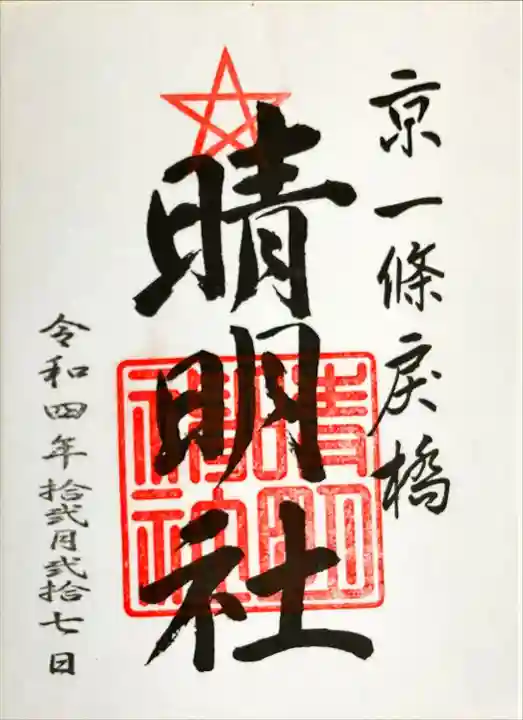 京一條戾橋
晴明社
晴明神社
令和四年拾弐月弐拾七日